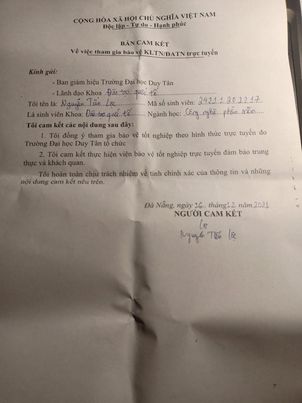 CỘNG HÒA XÃ HỘI CHỦ NGHĨA VIỆT NAM
Độc lập - Tự do - Hạnh phúc
BẢN CAM KẾT
Về việc tham gia bảo vệ KLTN/ĐATN trực tuyến
Kính gửi:
- Ban giám hiệu Trường Đại học Duy Tân
- Lãnh đạo Khoa Đào tạo quốc tế
Tôi tên là: Nguyễn Tấn Lộc Mã số sinh viên:
Là sinh viên Khoa: Đào tạo quốc tế Ngành học: Công nghệ phần mềm
Tôi cam kết các nội dung sau đây:
1. Tôi đồng ý tham gia bảo vệ tốt nghiệp theo hình thức trực tuyến do
Trường Đại học Duy Tân tổ chức
2. Tôi cam kết thực hiện bảo vệ tốt nghiệp trực tuyến đảm bảo trung
thực và khách quan.
Tôi hoàn toàn chịu trách nhiệm về tính chính xác của thông tin và những
nội dung cam kết nêu trên.
Đà Nẵng, ngày 16 tháng 12 năm 2021
NGƯỜI CAM KẾT
Nguyễn Tấn Lộc